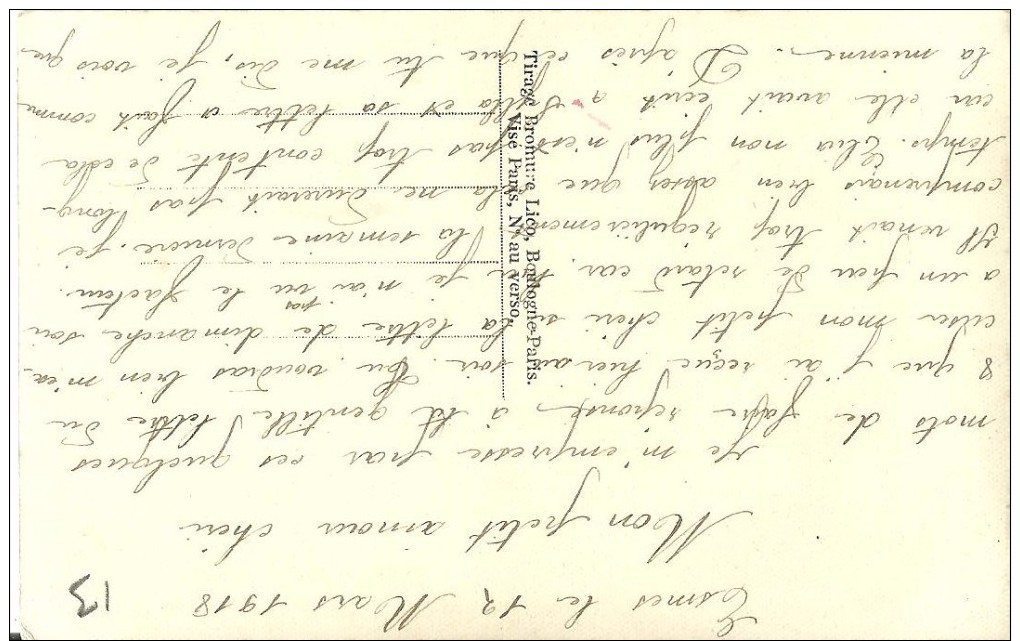 13
Esmes le 12 Mars 1918
Mon petit amour cheri
Je m'empresse par ces quelques
mots de faire reponse à ta gentille lettre du
8 que j'ai reçue hier au soir. Tu voudras bien m'ex-
cuser mon petit cheri si la lettre de dimanche soir
a un peu de retard car je n'ai pas vu le facteur.
Il venait trop regulierement la semaine derniere. je
comprenais bien assez que cela ne durerait pas long-
temps. Clia non plus n'est pas trop contente de cela
car elle avait ecrit a et sa lettre a fait comme
la mienne. D'après ce que tu me dis, je vois que
Tirage Bromure Lico, Boulogne-Paris.
Visé Paris, N° au verso,